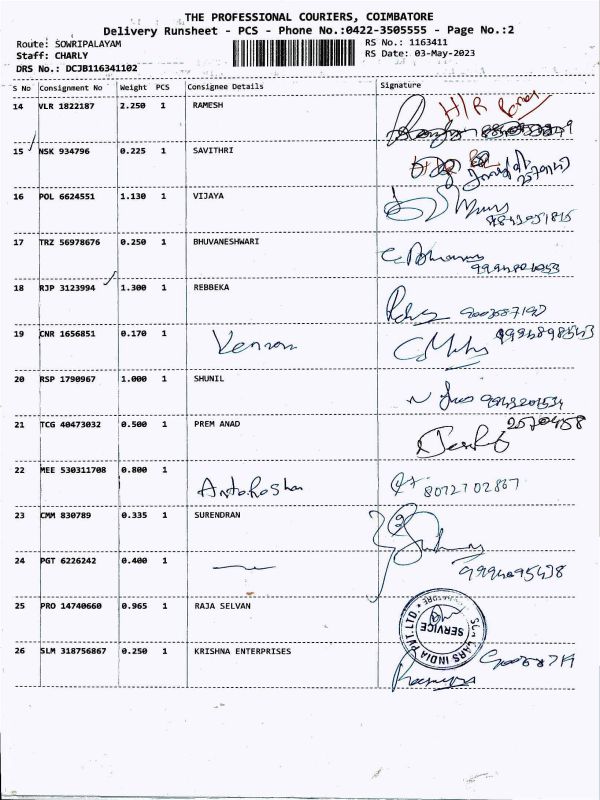 THE PROFESSIONAL COURIERS, COIMBATORE
Delivery Runsheet - PCS - Phone No.:0422-3505555 - Page No.:2
Route: SOWRIPALAYAM
RS No.: 1163411
Staff: CHARLY
RS Date: 03-May-2023
DRS No.: DCJB116341102
S No Consignment No Weight PCS Consignee Details Signature
14 VLR 1822187 2.250 1 RAMESH
H/R
15 NSK 934796 0.225 1 SAVITHRI
16 POL 6624551 1.130 1 VIJAYA
17 TRZ 56978676 0.250 1 BHUVANESHWARI
18 RJP 3123994 1.300 1 REBBEKA
19 CNR 1656851 0.170 1
20 RSP 1790967 1.000 1 SHUNIL
21 TCG 40473032 0.500 1 PREM ANAD
2570458
22 MEE 530311708 0.800 1
8072702867
23 CMM 830789 0.335 1 SURENDRAN
24 PGT 6226242 0.400 1
9994095438
25 PRO 14740660 0.965 1 RAJA SELVAN
SERVICE
INDIA PVT.LTD.
26 SLM 318756867 0.250 1 KRISHNA ENTERPRISES